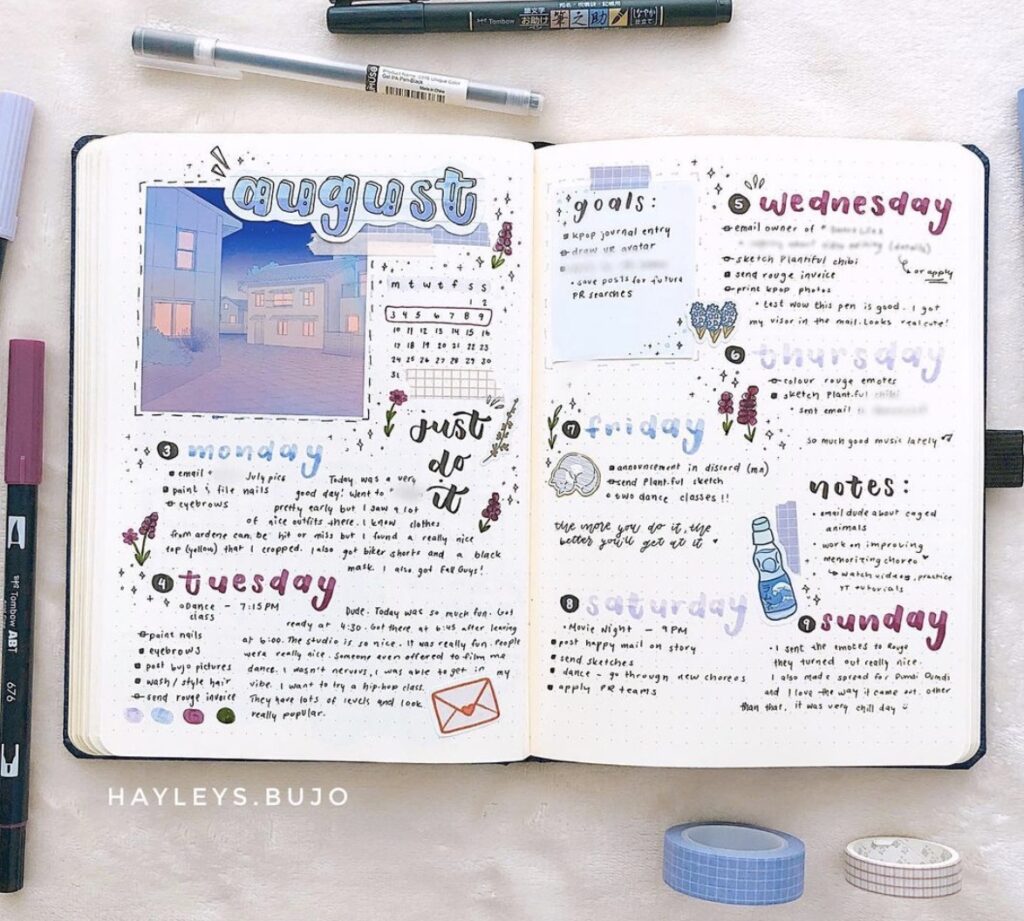 august
m t w t f s s
1 2
3 4 5 6 7 8 9
10 11 12 13 14 15 16
17 18 19 20 21 22 23
24 25 26 27 28 29 30
31
just
do
it
3 monday
email
July pics
paint & file nails
eyebrows
Today was a very
good day! Went to
pretty early but I saw a lot
of nice outfits there. I know clothes
from ardene can be hit or miss but I found a really nice
top (yellow) that I cropped. I also got biker shorts and a black
mask. I also got Fall Guys!
4 tuesday
Dance - 7:15 PM
class
paint nails
eyebrows
post bujo pictures
wash / style hair
send rouge invoice
Dude. Today was so much fun. Got
ready at 4:30. Got there at 6:45 after leaving
at 6:00. The studio is so nice. It was really fun. People
were really nice. Someone even offered to film me
dance. I wasn't nervous, I was able to get in my
vibe. I want to try a hip-hop class.
They have lots of levels and look
really popular.
goals:
kpop journal entry
draw ur avatar
save posts for future
PR searches
5 wednesday
email owner of
or apply
sketch Plantiful chibi
send rouge invoice
print kpop photos
test wow this pen is good. I got
my visor in the mail. Looks real cute!
6 thursday
colour rouge emotes
sketch Plantiful chibi
sent email
so much good music lately
7 friday
announcement in discord (mn)
send Plantiful sketch
two dance classes!!
the more you do it, the
better you'll get at it
notes:
email dude about caged
animals
work on improving
memorizing choreo
watch videos, practice
YT tutorials
8 saturday
Movie Night - 9 PM
post happy mail on story
send sketches
dance - go through new choreos
apply PR teams
9 sunday
I sent the emotes to Rouge
they turned out really nice.
I also made spread for Dumdi Dumdi
and I love the way it came out. Other
than that, it was very chill day
HAYLEYS.BUJO
Tombow
筆之助
Tombow ABT
676